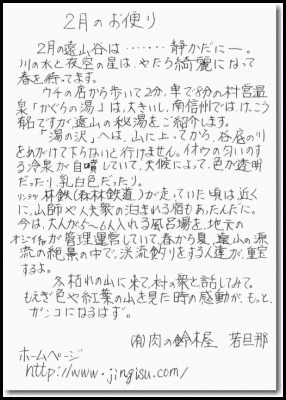 2月のお便り
2月の遠山谷は‥‥‥静かだにー。
川の水と夜空の星は、やたら綺麗になって
春を待ってます。
ウチの店から歩いて2分、車で8分の村営温
泉「かぐらの湯」は、大きいし、南信州では、けっこう
有名ですが、遠山の秘湯をご紹介します。
「湯の沢」へは、山に上ってから、谷底の川
をめがけて下らないと行けません。イオウの匂いのす
る冷泉が自噴していて、天候によって、色が透明
だったり、乳白色だったり。
林鉄(森林鉄道)が走っていた頃は近く
に、山師や人夫衆の泊まいる宿もあったんだに。
今は、大人が5〜6人入れる風呂場を、地元の
オジイ様が管理運営していて、春から夏、遠山の源
流の絶景の中で、渓流釣りをする人達が重宝
するよ。
冬枯れの山に来て、村の衆と話してみて。
もえぎ色や紅葉の山を見た時の感動が、もっと、
ガンコになるはず。
(有)肉の鈴木屋 若旦那
ホームページ
http://www.jingisu.com/